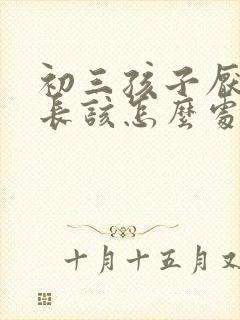 初三孩子厭
長該怎麼處
十月十五月